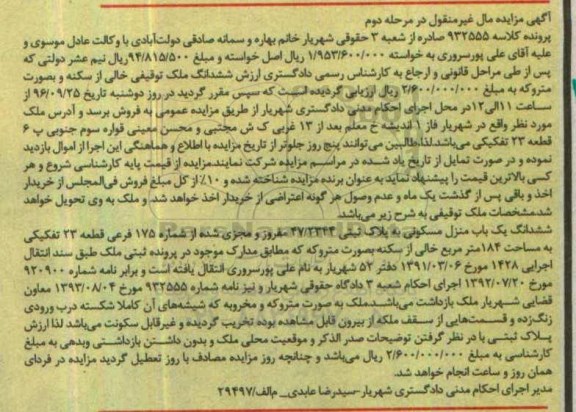 آگهی مزایده مال غیرمنقول در مرحله دوم
پرونده کلاسه ۹۳۲۵۵۵ صادره از شعبه ۳ حقوقی شهریار خانم بهاره و سمانه صادقی دولت‌آبادی با وکالت عادل موسوی و
علیه آقای علی پورسروری به خواسته ۱/۹۵۳/۶۰۰/۰۰۰ ریال اصل خواسته و مبلغ ۹۴/۸۱۵/۵۰۰ریال نیم عشر دولتی که
پس از طی مراحل قانونی و ارجاع به کارشناس رسمی دادگستری ارزش ششدانگ ملک توقیفی خالی از سکنه و بصورت
متروکه به مبلغ ۲/۶۰۰/۰۰۰/۰۰۰ ریال ارزیابی گردیده است که سپس مقرر گردید در روز دوشنبه تاریخ ۹۶/۰۹/۲۵ از
ساعت ۱۱الی۱۲در محل اجرای احکام مدنی دادگستری شهریار از طریق مزایده عمومی به فروش برسد و آدرس ملک
مورد نظر واقع در شهریار فاز ۱ اندیشه خ معلم بعد از ۱۳ غربی ک ش مجتبی و محسن معینی قواره سوم جنوبی پ ۶
قطعه ۲۳ تفکیکی می‌باشد.لذا طالبین می‌توانند پنج روز جلوتر از تاریخ مزایده با اطلاع و هماهنگی این اجرا از اموال بازدید
نموده و در صورت تمایل از تاریخ یاد شده در مراسم مزایده شرکت نمایند.مزایده از قیمت پایه کارشناسی شروع و هر
کسی بالاترین قیمت را پیشنهاد نماید به عنوان برنده مزایده شناخته شده و ۱۰٪ از کل مبلغ فروش فی‌المجلس از خریدار
اخذ و باقی پس از گذشت یک ماه و عدم وصول هر گونه اعتراضی از خریدار اخذ خواهد شد. و ملک به وی تحویل خواهد
شد.مشخصات ملک توقیفی به شرح زیر می‌باشد.
ششدانگ یک باب منزل مسکونی به پلاک ثبتی ۴۷/۲۳۴۴ مفروز و مجزی شده از شماره ۱۷۵ فرعی قطعه ۲۳ تفکیکی
به مساحت ۱۸۴متر مربع خالی از سکنه بصورت متروکه که مطابق مدارک موجود در پرونده ثبتی ملک طبق سند انتقال
اجرایی ۱۴۲۸ مورخ ۱۳۹۱/۰۳/۰۶ دفتر ۵۲ شهریار به نام علی پورسروری انتقال یافته است و برابر نامه شماره ۹۲۰۹۰۰
مورخ ۱۳۹۲/۰۷/۲۰ اجرای احکام شعبه ۳ دادگاه حقوقی شهریار و نیز نامه شماره ۹۳۲۵۵۵ مورخ ۱۳۹۳/۰۸/۰۴ معاون
قضایی شهریار ملک بازداشت می‌باشد.ملک به صورت متروکه و مخروبه که شیشه‌های آن کاملا شکسته درب ورودی
زنگ‌زده و قسمت‌هایی از سقف ملکه از بیرون قابل مشاهده بوده تخریب گردیده و غیرقابل سکونت می‌باشد لذا ارزش
پلاک ثبتی با در نظر گرفتن توضیحات صدر الذکر و موقعیت محلی ملک و بدون داشتن بازداشتی وبدهی به مبلغ
کارشناسی به مبلغ ۲/۶۰۰/۰۰۰/۰۰۰ ریال می‌باشد و چنانچه روز مزایده مصادف با روز تعطیل گردید مزایده در فردای
همان روز و ساعت انجام خواهد شد.
مدیر اجرای احکام مدنی دادگستری شهریار-سیدرضا عابدی_ م/الف/۲۹۴۹۷